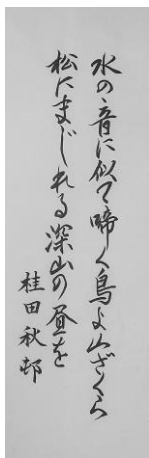 水の音に似て啼く鳥よ山ざくら
松にまじれる深山の昼を
桂田秋邨